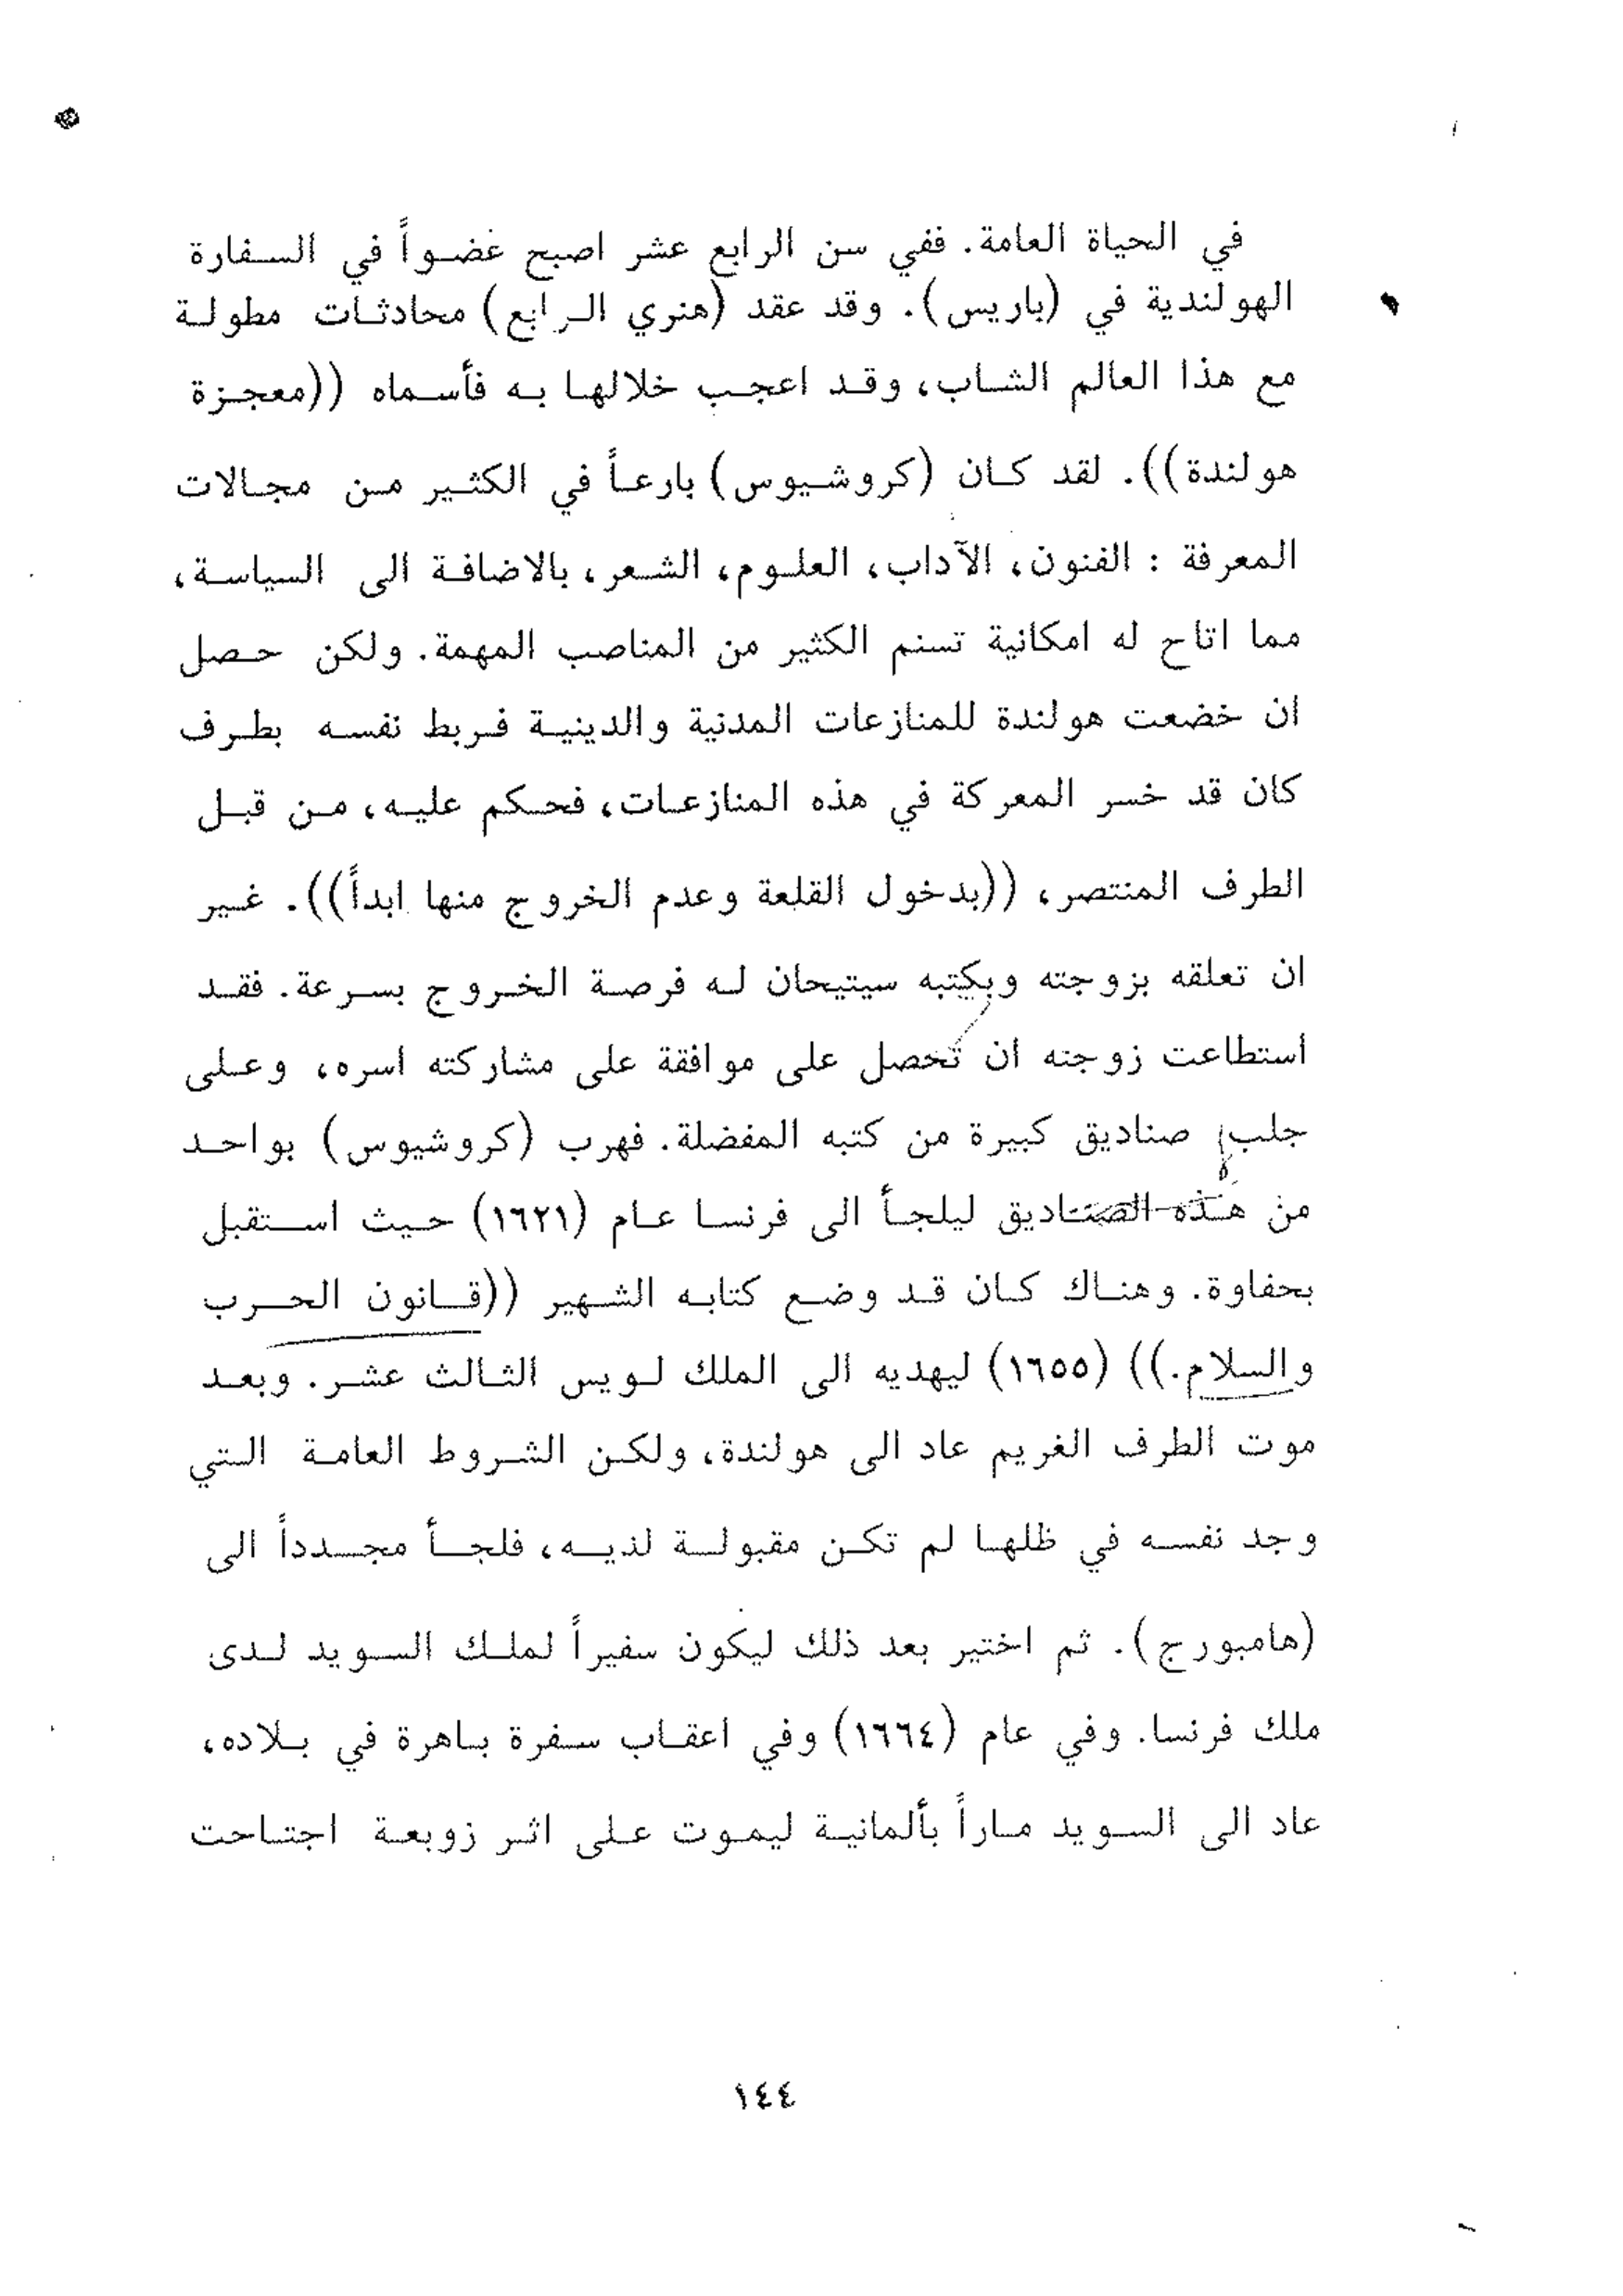 في الحياة العامة. ففي سن الرابع عشر اصبح عضواً في السفارة
الهولندية في (باريس). وقد عقد (هنري الرابع) محادثات مطولة
مع هذا العالم الشاب، وقد اعجب خلالها به فأسماه ((معجزة
هولندة)). لقد كان (كروشيوس) بارعاً في الكثير من مجالات
المعرفة : الفنون، الآداب، العلوم، الشعر، بالاضافة الى السياسة،
مما اتاح له امكانية تسنم الكثير من المناصب المهمة. ولكن حصل
ان خضعت هولندة للمنازعات المدنية والدينية فربط نفسه بطرف
كان قد خسر المعركة في هذه المنازعات، فحكم عليه، من قبل
الطرف المنتصر، ((بدخول القلعة وعدم الخروج منها ابداً)). غير
ان تعلقه بزوجته وبكتبه سيتيحان له فرصة الخروج بسرعة. فقد
استطاعت زوجته ان تحصل على موافقة على مشاركته اسره، وعلى
جلب صناديق كبيرة من كتبه المفضلة. فهرب (كروشيوس) بواحد
من هذه الصناديق ليلجأ الى فرنسا عام (١٦٢١) حيث استقبل
بحفاوة. وهناك كان قد وضع كتابه الشهير ((قانون الحرب
والسلام.)) (١٦٥٥) ليهديه الى الملك لويس الثالث عشر. وبعد
موت الطرف الغريم عاد الى هولندة، ولكن الشروط العامة التي
وجد نفسه في ظلها لم تكن مقبولة لديه، فلجأ مجدداً الى
(هامبورج). ثم اختير بعد ذلك ليكون سفيراً لملك السويد لدى
ملك فرنسا. وفي عام (١٦٦٤) وفي اعقاب سفرة باهرة في بلاده،
عاد الى السويد ماراً بألمانية ليموت على اثر زوبعة اجتاحت
١٤٤